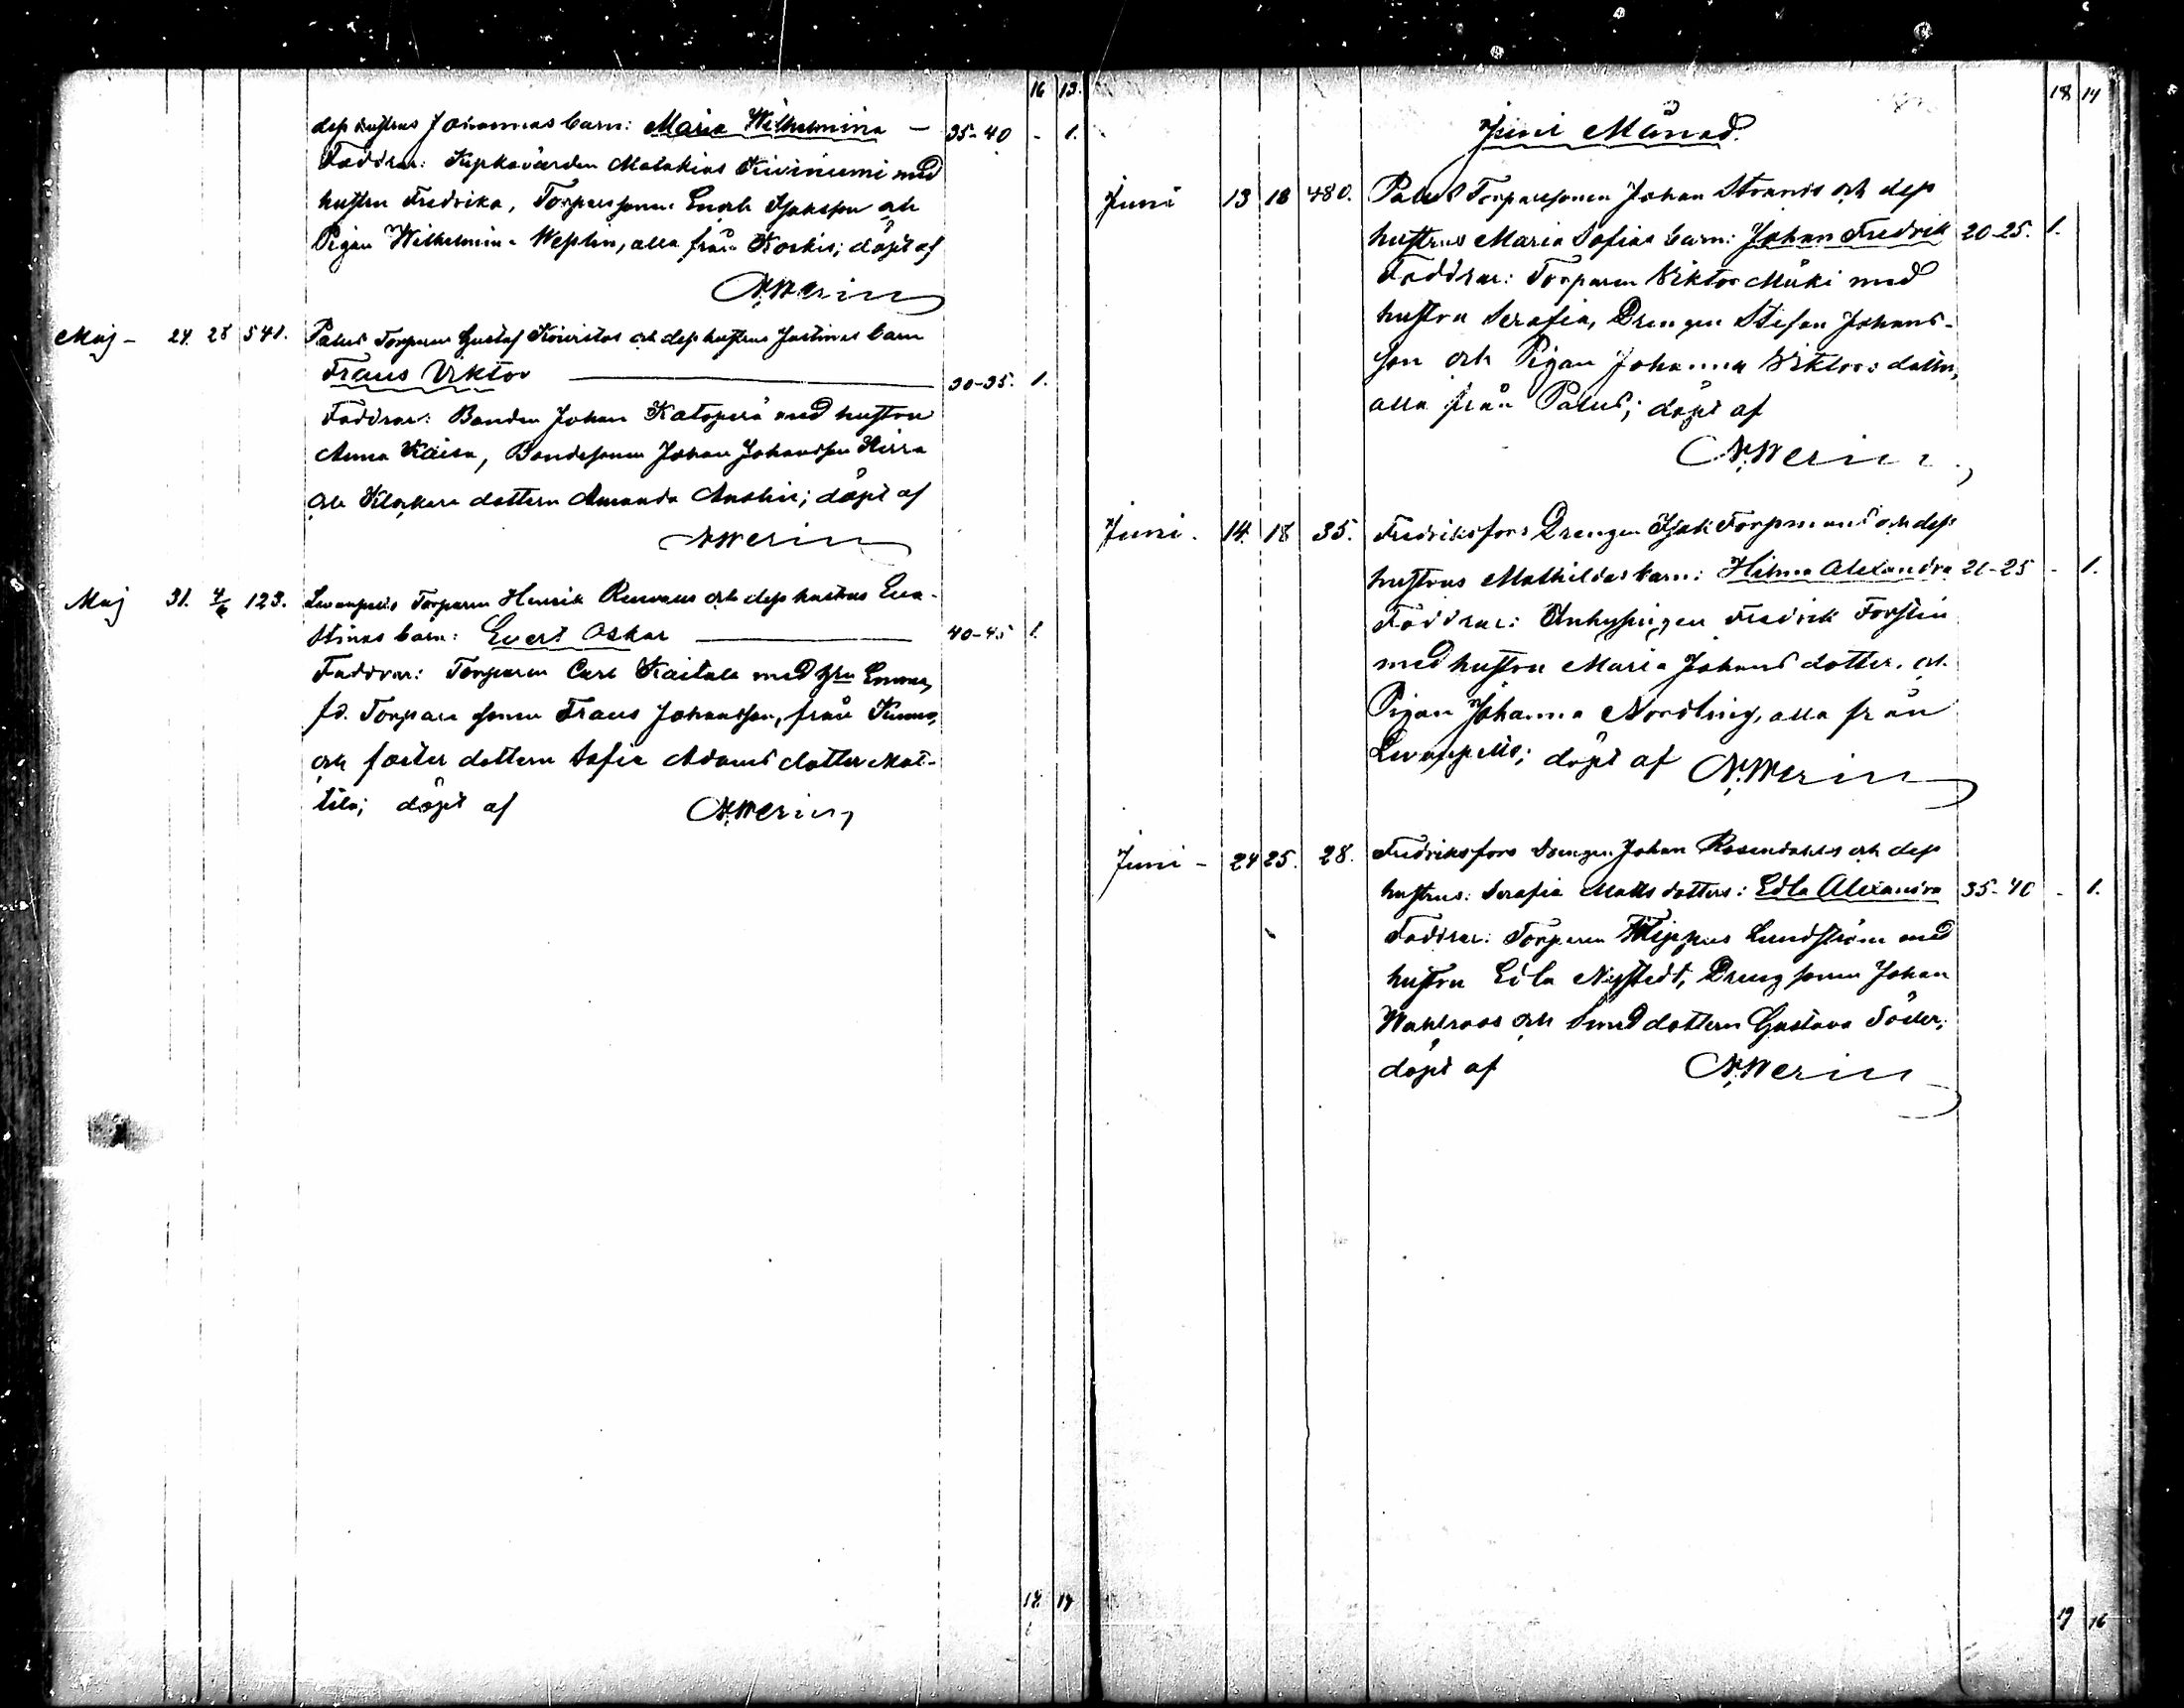 16 13.
dess hustrus Johannas barn: Maria Wilhelmina — 35-40 - 1.
Faddrar: Kyrkovärden Malakias Kiviniemi med
hustru Fredrika, Torparesonen Enoch Isaksson och
Pigan Wilhelmina Weslin, alla från Korkis; döpt af
N. Merin
Maj - 24. 28 541. Palus Torparen Gustaf Koivistos och dess hustrus Justinas barn
Frans Viktor — 30-35. 1.
Faddrar: Bonden Johan Katoperä med hustru
Anna Kaisa, Bondesonen Johan Johansson
och Klockare dottern Amanda; döpt af
N. Merin
Maj 31. 4/6 123. Levanpelto Torparen Henrik och dess hustrus Eva-
Stinas barn: Evert Oskar — 40-45 1.
Faddrar: Torparen Carl Kaitala med hru Emma,
fd. Torpare sonen Frans Johansson, från
och foster dottern Sofia Adams dotter Mat-
tila; döpt af N. Merin
14
18 14
Juni Månad.
Juni 13 18 480. Palus Torparesonen Johan Strands och dess
hustrus Maria Sofias barn: Johan Fredrik 20-25. 1.
Faddrar: Torparen Viktor Mäki med
hustru Serafia, Drengen Stefan Johans-
son och Pigan Johanna Viktors dotter,
alla från Palus; döpt af
N. Merin
Juni. 14. 18 35. Fredriksfors Drengen Isak Torpmans och dess
hustrus Mathildas barn: Hilma Alexandra 21-25 - 1.
Faddrar: Inhysingen Fredrik Forstén
med hustru Maria Johans dotter. och
Pigan Johanna Nordling, alla från
döpt af N. Merin
Juni - 24 25. 28. Fredriksfors Drengen Johan Rosendahls och dess
hustrus: Serafia Matts dotters: Edla Alexandra 35-40 - 1.
Faddrar: Torparen Lundström med
hustru Edla Nystedt, Dreng sonen Johan
Wahlroos och Smed dottern Gustava Söder;
döpt af N. Merin
19 16